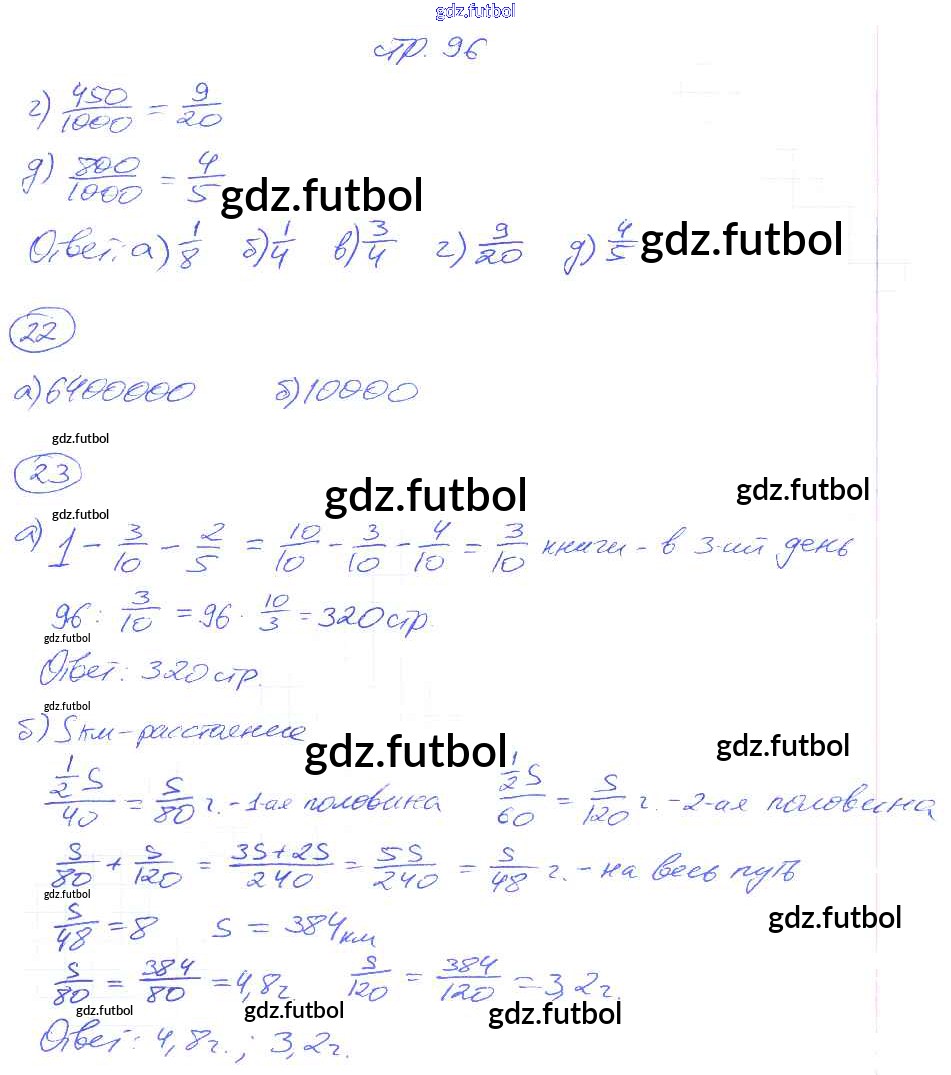 gdz.futbol
стр. 96
г) 450/1000 = 9/20
д) 800/1000 = 4/5
gdz.futbol
Ответ: а) 1/8 б) 1/4 в) 3/4 г) 9/20 д) 4/5
gdz.futbol
22
а) 6400000 б) 10000
gdz.futbol
23
gdz.futbol
gdz.futbol
gdz.futbol
а) 1 - 3/10 - 2/5 = 10/10 - 3/10 - 4/10 = 3/10 книги - в 3-ий день
96 : 3/10 = 96 · 10/3 = 320 стр.
gdz.futbol
Ответ: 320 стр.
gdz.futbol
б) S км - расстаение
gdz.futbol
gdz.futbol
1/2 S/40 = S/80 г. - 1-ая половина 1/2 S/60 = S/120 г. - 2-ая половина
S/80 + S/120 = 3S+2S/240 = 5S/240 = S/48 г. - на весь путь
gdz.futbol
S/48 = 8 S = 384 км
gdz.futbol
S/80 = 384/80 = 4,8 г. S/120 = 384/120 = 3,2 г.
gdz.futbol
gdz.futbol
gdz.futbol
Ответ: 4,8 г.; 3,2 г.